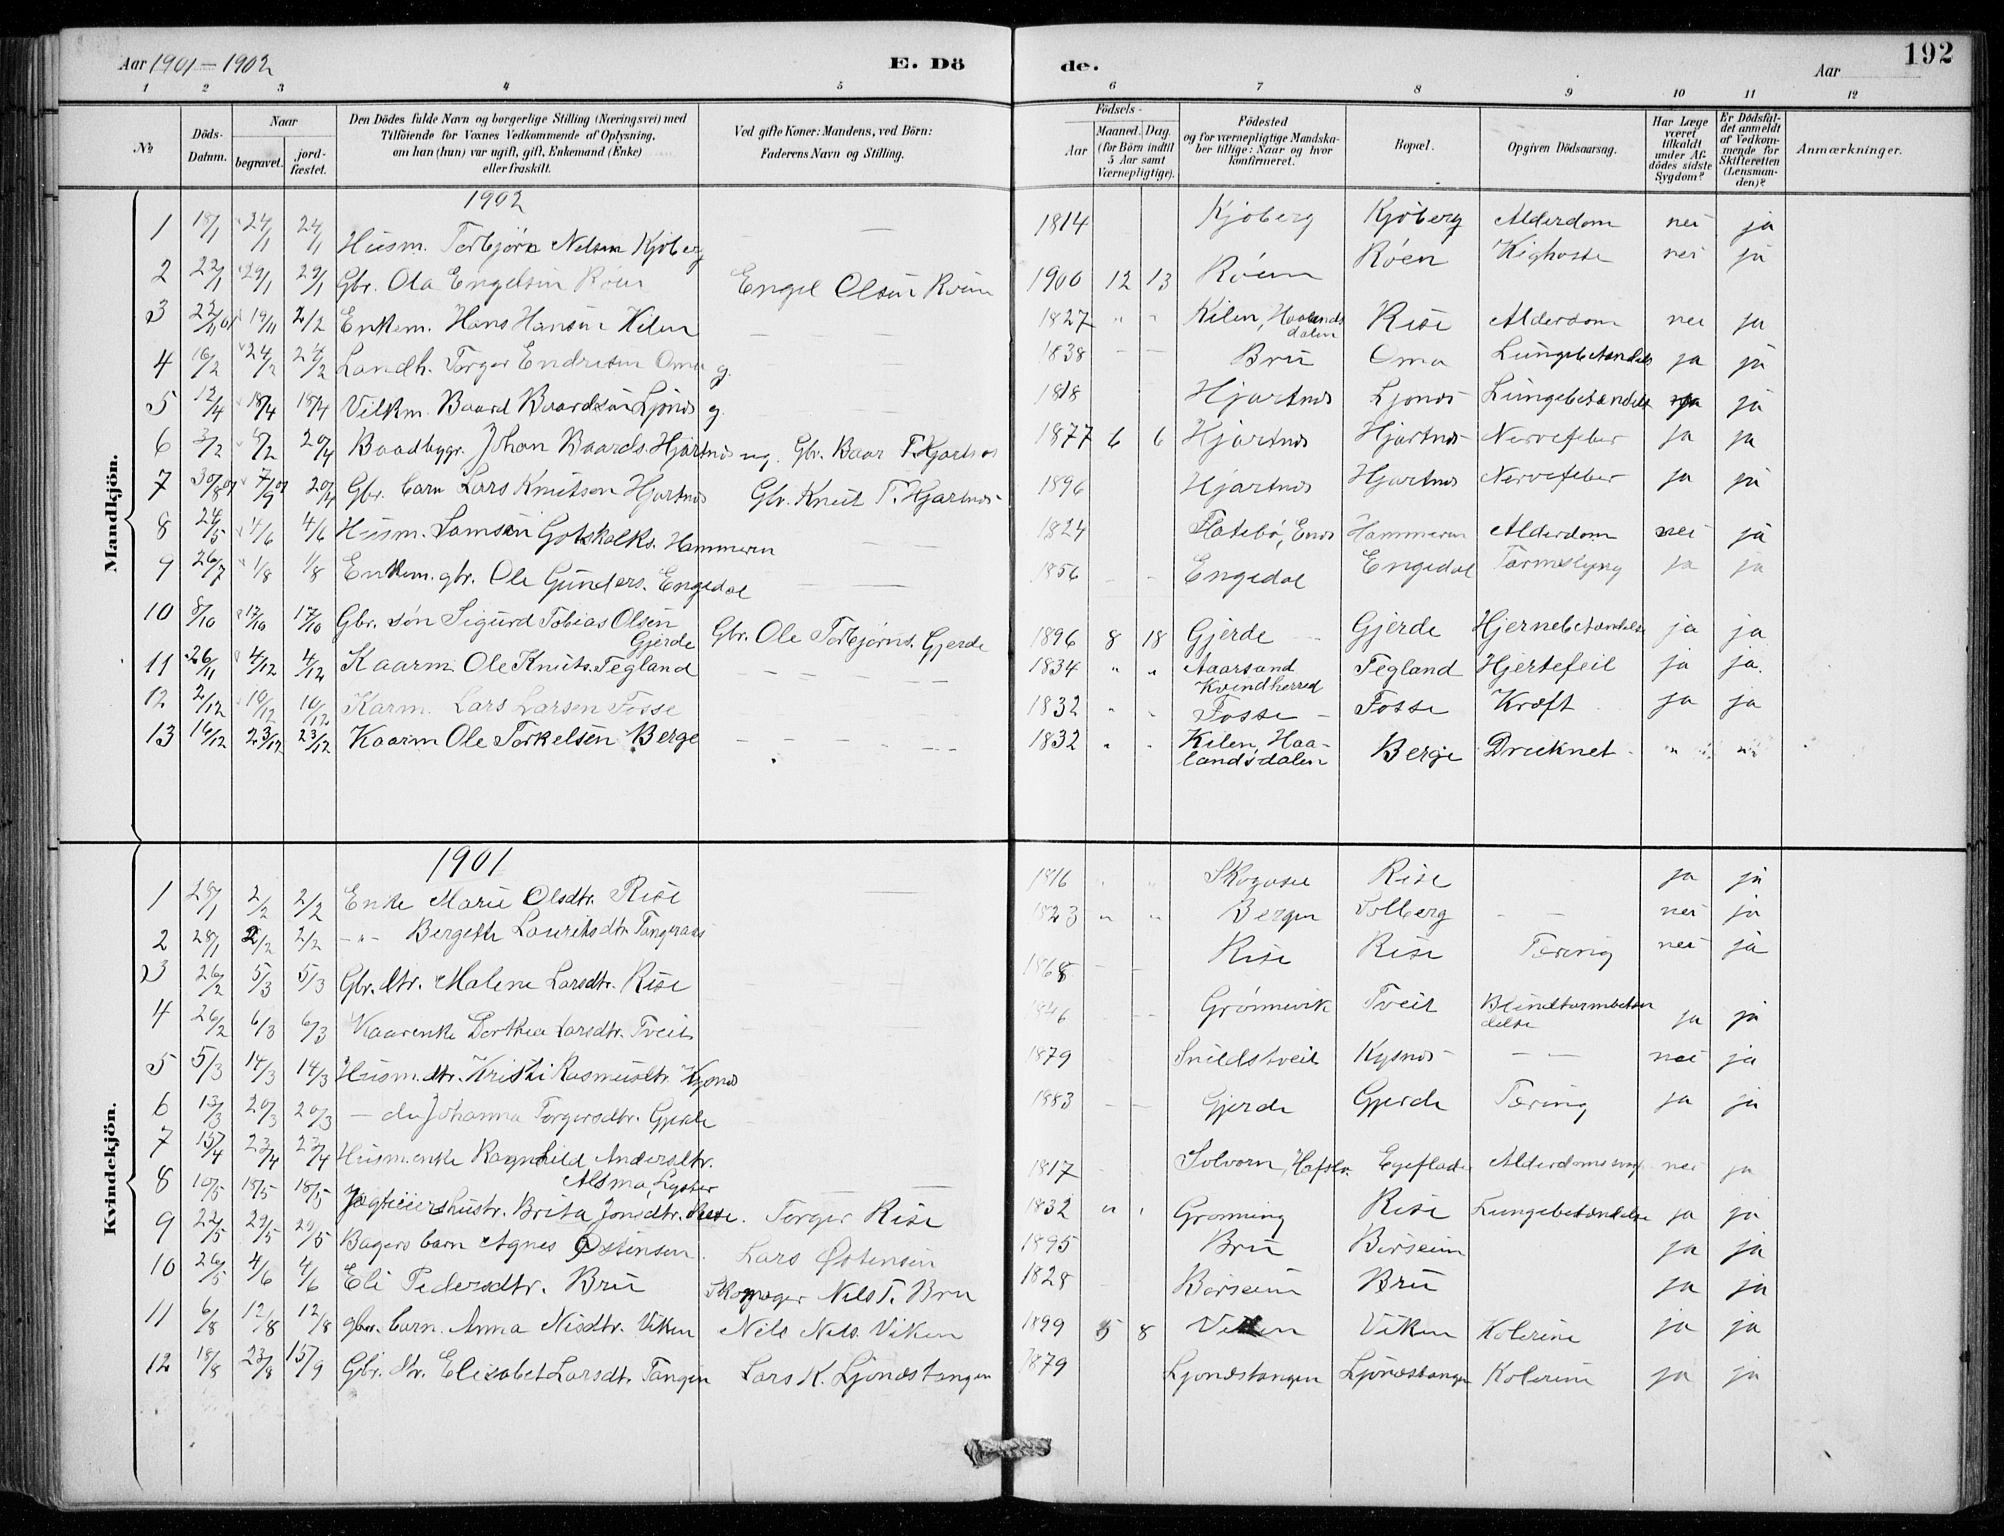 Aar 1901-1902
E. Dö
de.
Aar
192
1 2 3 4 5 6 7 8 9 10 11 12
№
Döds-Datum.
Naar
begravet.
jord-fæstet.
Den Dödes fulde Navn og borgerlige Stilling (Næringsvei) med
Tilföiende for Voxnes Vedkommende af Oplysning,
om han (hun) var ugift, gift, Enkemand (Enke)
eller fraskilt.
Ved gifte Koner: Mandens, ved Börn:
Faderens Navn og Stilling.
Födsels-
Aar
Maaned. Dag.
(for Börn indtil
5 Aar samt
Værnepligtige).
Födested
og for værnepligtige Mandska-
ber tillige: Naar og hvor
Konfirmeret.
Bopæl.
Opgiven Dödsaarsag.
Har Læge
været
tilkaldt
under Af-
dödes sidste
Sygdom?
Er Dödsfal-
det anmeldt
af Vedkom-
mende for
Skifteretten
(Lensman-
den)?
Anmærkninger.
Mandkjön.
1902
1 18/1 24/1 24/1 Husm. Torbjørn Nelsen Kjøberg 1814 Kjøberg Kjøberg Alderdom nei ja
2 22/1 29/1 29/1 Gbr. Ola Engelsen Røen Engel Olsen Røen 1900 12 13 Røen Røen Kighoste nei ja
3 22/11 01 19/11 2/2 Enkem. Hans Hansen Kilen 1827 " " Kilen, Haalands
dalen Rise Alderdom nei ja
4 16/2 24/2 24/2 Landh. Torger Endresen Oma g. 1838 Bru Oma Lungebetændels ja ja
5 12/4 18/4 18/4 Vilkm. Baard Baardsen Ljones g. 1818 Hjartnes Ljones Lungebetændels ja ja
6 3/2 2/2 20/4 Baadbyggr. Johan Baards. Hjartnes ug. Gbr. Baar T. Hjartnes 1877 6 6 Hjartnes Hjartnes Nervefeber ja ja
7 30/8 01 7/9 01 20/4 Gbr. barn Lars Knutsen Hjartnes Gbr. Knut T. Hjartnes 1896 Hjartnes Hjartnes Nervefeber ja ja
8 24/5 4/6 4/6 Husm. Samson Gotskalks. Hammeren 1824 Flatebø, Enes Hammeren Alderdom nei ja
9 26/7 1/8 1/8 Enkem. gbr. Ole Gunders. Engedal 1856 Engedal Engedal Tarmslyng ja ja
10 8/10 17/10 17/10 Gbr. søn Sigurd Tobias Olsen
Gjerde Gbr. Ole Torbjørns. Gjerde 1896 8 18 Gjerde Gjerde Hjernebetændelse ja ja
11 26/11 4/12 4/12 Kaarm. Ole Knuts. Tegland 1834 " " Aarsand
Kvindherred Tegland Hjertefeil ja ja.
12 2/12 10/12 10/12 Karm. Lars Larsen Fosse 1832 " " Fosse Fosse Kræft ja ja
13 16/12 23/12 23/12 Kaarm Ole Torkelsen Berge 1832 " " Kilen, Haa-
landsdalen Berge Druknet " "
Kvindekjön.
1901
1 28/1 2/2 2/2 Enke Marie Olsdtr. Rise 1816 " " Skogasel Rise ja ja
2 28/1 2/2 2/2 -"- Bergeth Lauritsdtr. Tangeraas 1823 " " Bergen Solberg nei ja
3 26/2 5/3 5/3 Gbr. dtr. Malene Larsdtr. Rise 1868 Rise Rise Tæring nei ja
4 26/2 6/3 6/3 Kaarenke Dorthea Larsdtr. Tveit 1846 Grønnevik Tveit Blindtarmbetæn
delse ja ja
5 5/3 14/3 14/3 Husm. dtr. Kristi Rasmusdtr. Kysnes 1879 Snildstveit Kysnes nei ja
6 13/3 20/3 20/3 - do Johanna Torgersdtr. Gjerde 1883 Gjerde Gjerde Tæring ja ja
7 15/4 23/4 23/4 Husm. enke Ragnhild Andersdtr.
Alsma, Lyster 1817 Solvorn, Hafslo Egeflade nei ja
8 10/5 18/5 18/5 Jægteiershustr. Brita Jonsdtr. Rise. Torger Rise 1832 " " Grønning Rise Lungebetændelse ja ja
9 22/5 29/5 29/5 Bagers barn Agnes Østensen Lars Østensen 1895 Bru Børseim ja ja
10 26/5 4/6 4/6 Eli Pedersdtr. Bru Skomager Nils T. Bru 1828 Børseim Bru ja ja
11 6/8 12/8 12/8 gbr. barn Anna Nilsdtr. Viken Nils Nels. Viken 1899 5 8 Viken Viken Kolerine ja ja
12 18/8 23/8 15/9 Gbr. dtr. Elisabet Larsdtr. Tangen Lars K. Ljonestangen 1879 Ljonestangen Ljonestangen Kolerine ja ja